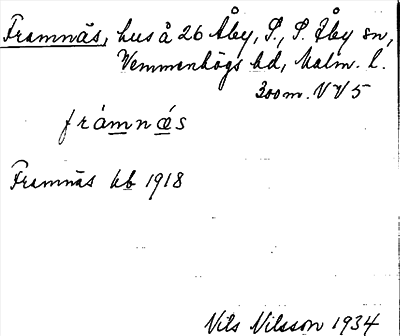 Framnäs, hus å 26 Åby, S., S. Åby sn,
Vemmenhögs hd, Malm. l.
300 m. VV5
frámnǽs
Framnäs kb 1918
Nils Nilsson 1934